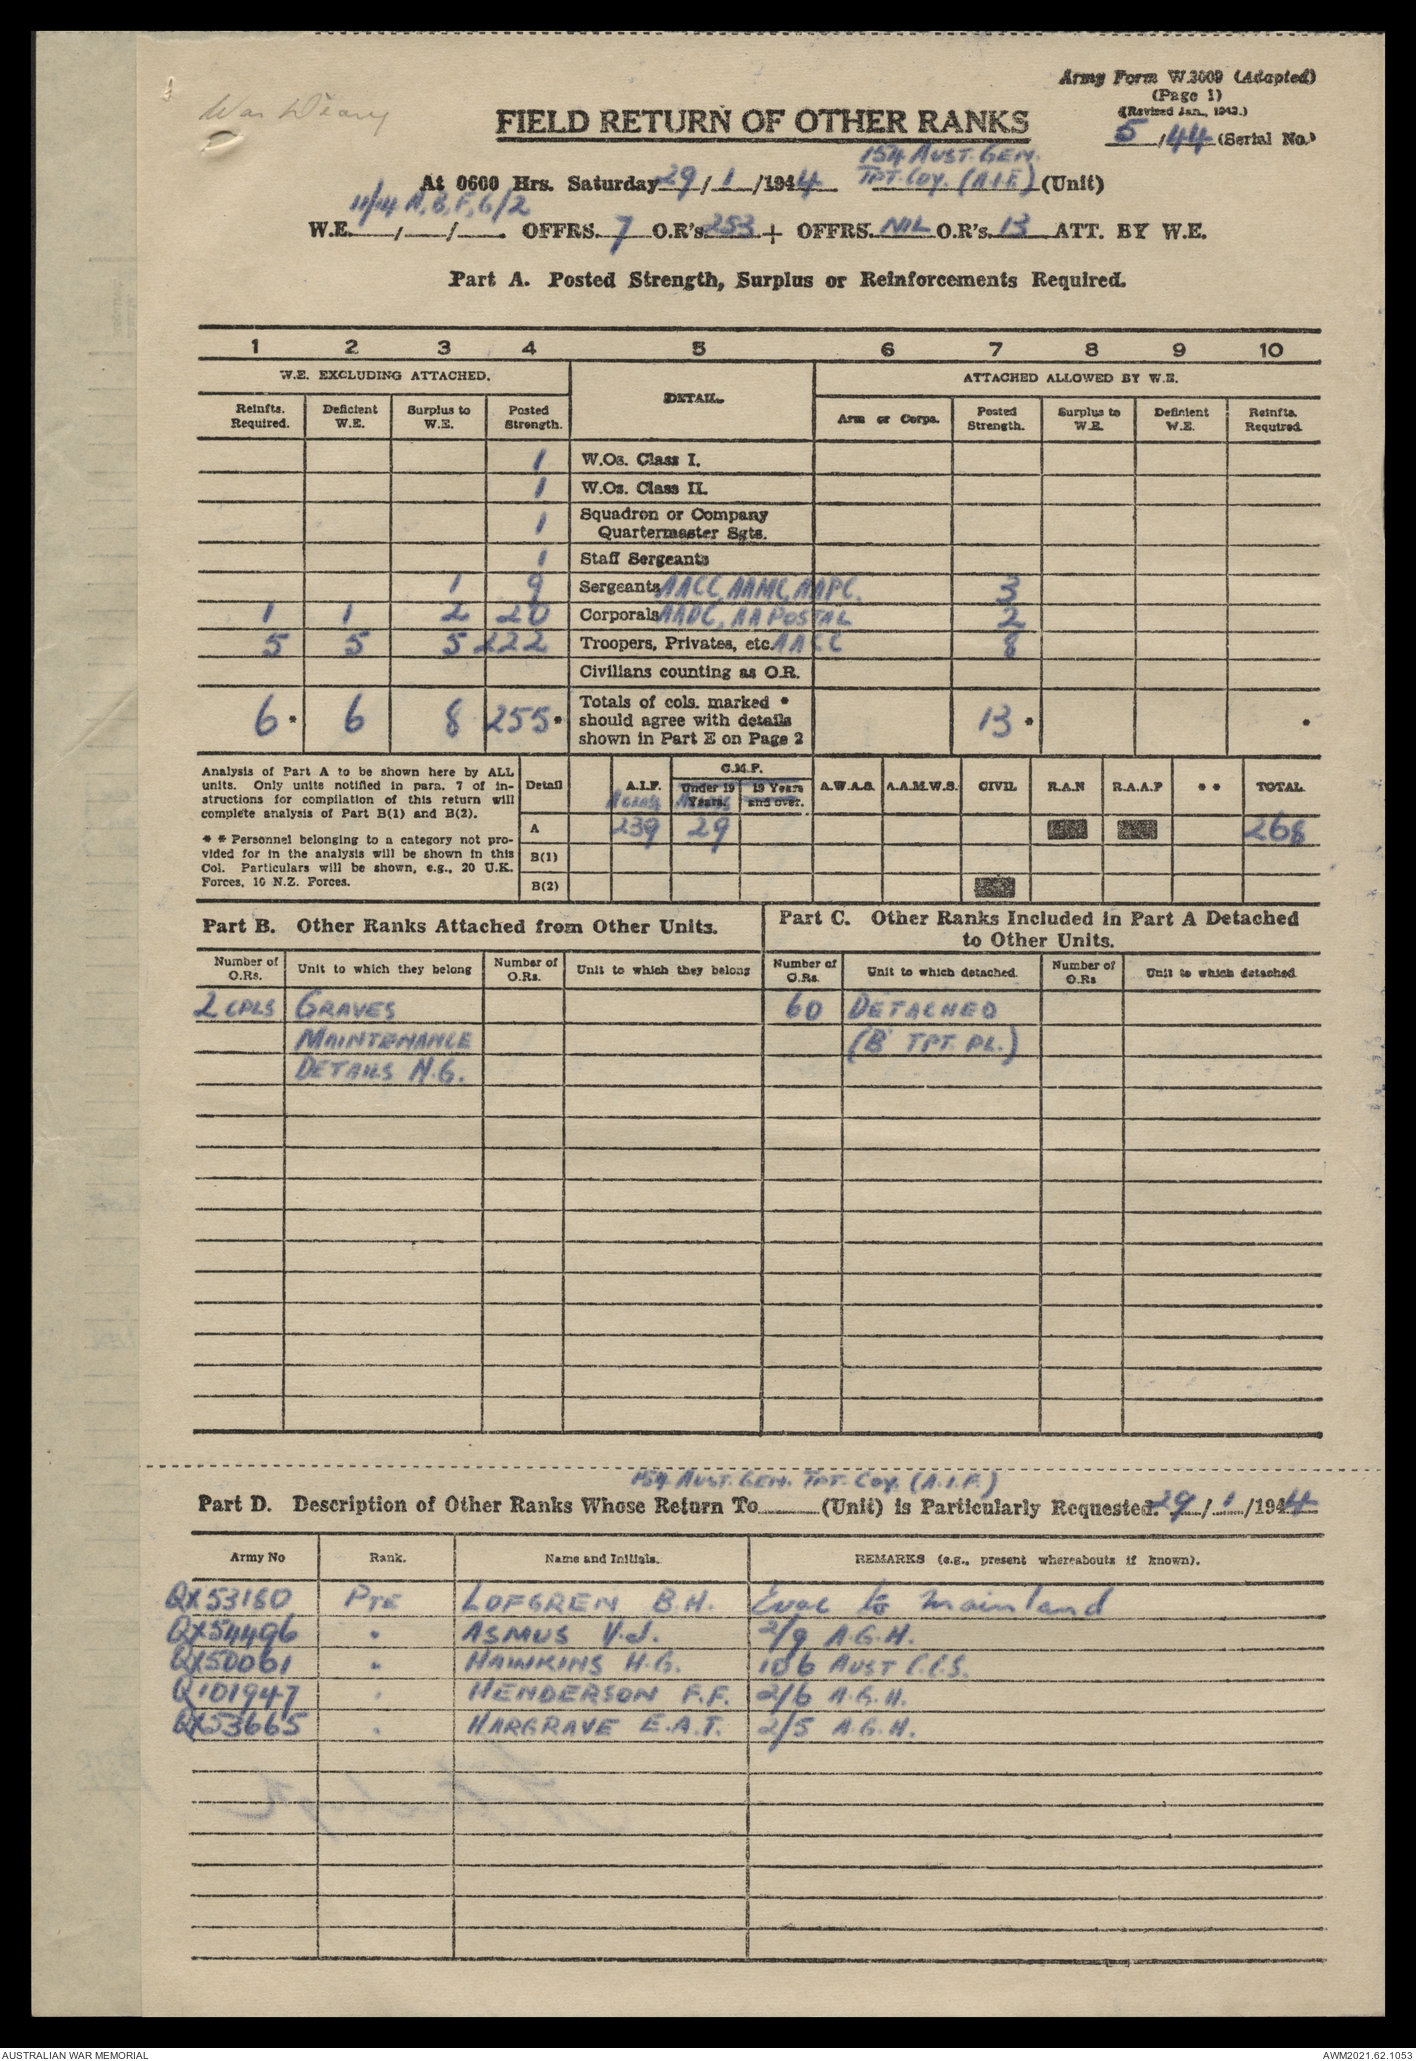 Army Form W.3009 (Adapted)
(Page 1)
(Revised Jan., 1943.)
War Diary
FIELD RETURN OF OTHER RANKS
5/44 (Serial No.)
154 AUST. GEN.
At 0600 Hrs. Saturday 29/1/1944 TPT. COY. (A.I.F.) (Unit)
A, B, F, G/2
W.E. / / . OFFRS. 7 O.R's. 253 + OFFRS. NIL O.R's. 13 ATT. BY W.E.
Part A. Posted Strength, Surplus or Reinforcements Required.
1 2 3 4 5 6 7 8 9 10
W.E. EXCLUDING ATTACHED. DETAIL. ATTACHED ALLOWED BY W.E.
Reinfts. Required. Deficient W.E. Surplus to W.E. Posted Strength. Arm or Corps. Posted Strength. Surplus to W.E. Deficient W.E. Reinfts. Required.
1 W.Os. Class I.
1 W.Os. Class II.
1 Squadron or Company
Quartermaster Sgts.
1 Staff Sergeants
1 9 Sergeants AACC, AAMC, AAPC. 3
1 1 2 20 Corporals AADC, AA POSTAL 2
5 5 5 222 Troopers, Privates, etc. AACC 8
Civilians counting as O.R.
6 * 6 8 255 * Totals of cols. marked *
should agree with details
shown in Part E on Page 2 13 * *
Analysis of Part A to be shown here by ALL
units. Only units notified in para. 7 of in-
structions for compilation of this return will
complete analysis of Part B(1) and B(2).
* * Personnel belonging to a category not pro-
vided for in the analysis will be shown in this
Col. Particulars will be shown, e.g., 20 U.K.
Forces, 10 N.Z. Forces.
Detail A.I.F. C.M.F. Under 19 Years. 19 Years and over. A.W.A.S. A.A.M.W.S. CIVIL R.A.N R.A.A.F * * TOTAL
A 239 29 268
B(1)
B(2)
Part B. Other Ranks Attached from Other Units.
Part C. Other Ranks Included in Part A Detached
to Other Units.
Number of O.Rs. Unit to which they belong Number of O.Rs. Unit to which they belong Number of O.Rs. Unit to which detached. Number of O.Rs Unit to which detached.
2 CPLS GRAVES 60 DETACHED
MAINTENANCE (B TPT. PL.)
DETAILS N.G.
154 AUST. GEN. TPT. COY. (A.I.F.)
Part D. Description of Other Ranks Whose Return To (Unit) is Particularly Requested. 29/1/1944
Army No Rank. Name and Initials. REMARKS (e.g., present whereabouts if known).
QX53180 PTE LOFGREN B.H. Evac to Mainland
QX54496 " ASMUS V.J. 2/9 A.G.H.
QX50061 " HAWKINS H.G. 106 AUST C.C.S.
Q101947 " HENDERSON F.F. 2/6 A.G.H.
QX53665 " HARGRAVE E.A.T. 2/5 A.G.H.
AUSTRALIAN WAR MEMORIAL
AWM2021.62.1053